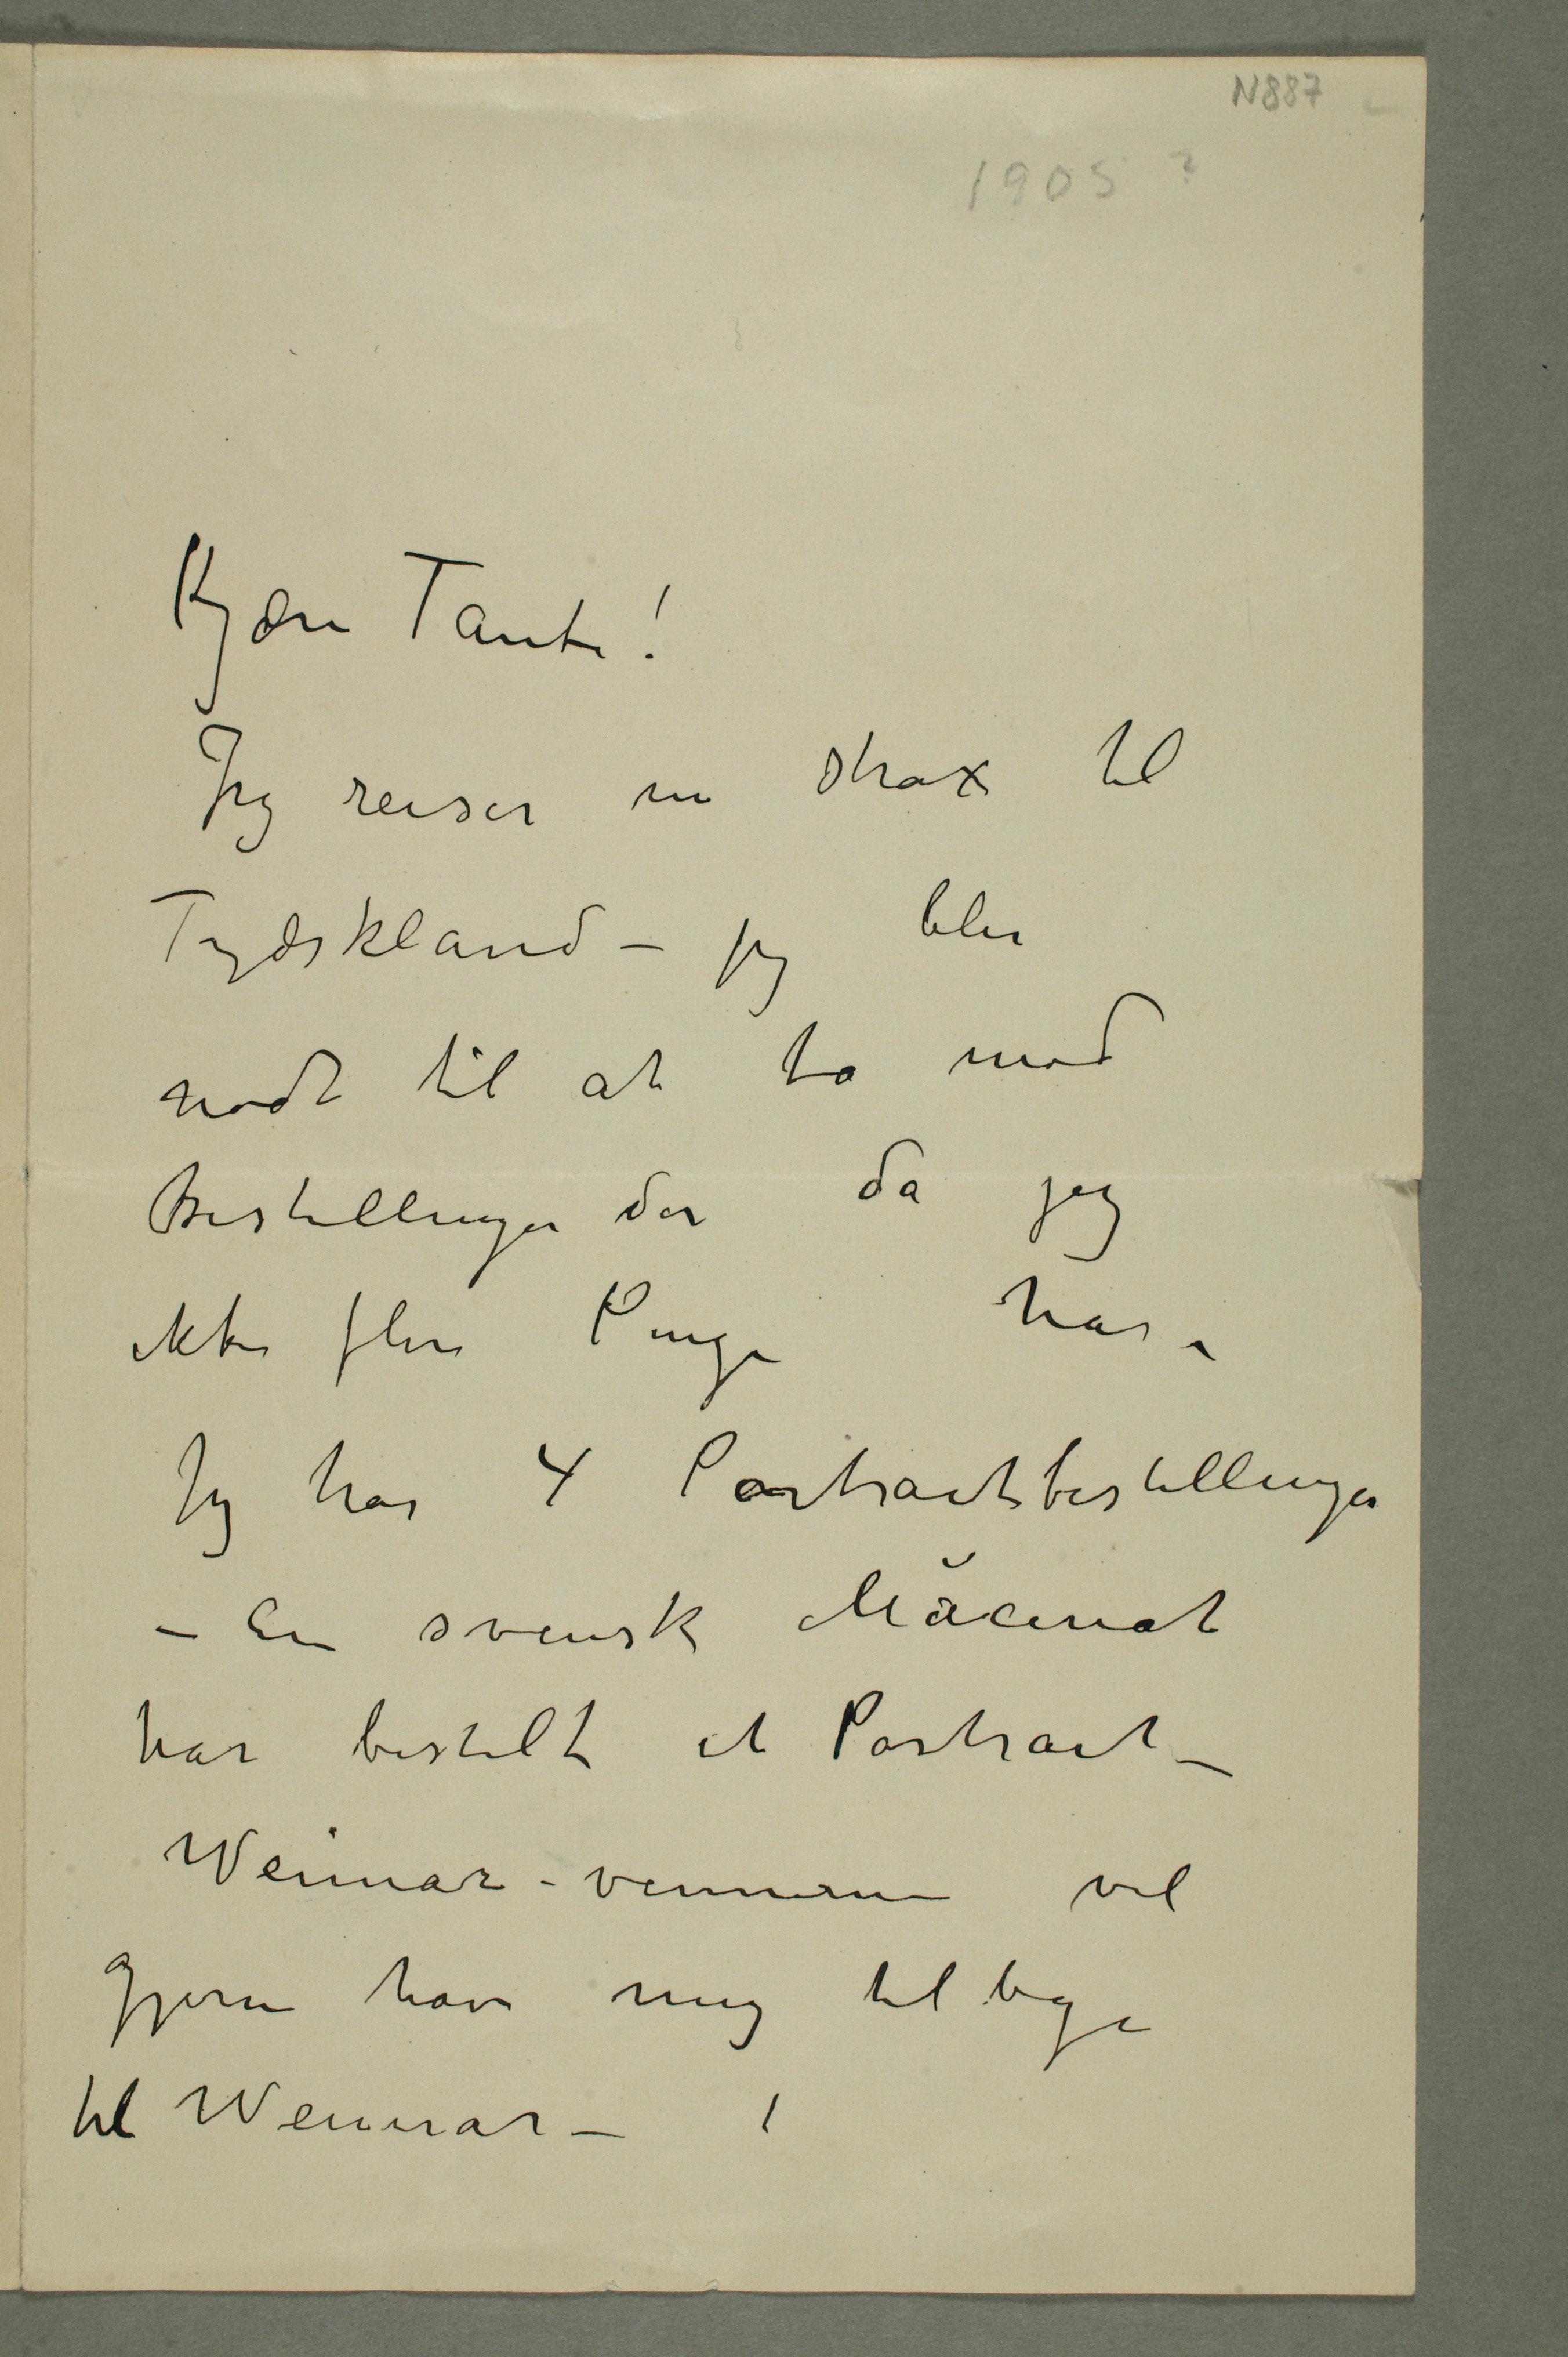 N887
1905 ?
Kjære Tante!
Jeg reiser nu strax til
Tydskland – jeg blir
nødt til at ta mod
Bestillinger der da jeg
ikke flere Penge har –
Jeg har 4 Portraitbestillinger
– En svensk Mäcenat
har bestilt et Portrait –
Weimar-vennerne vil
gjerne have mig tilbage
til Weimar – !